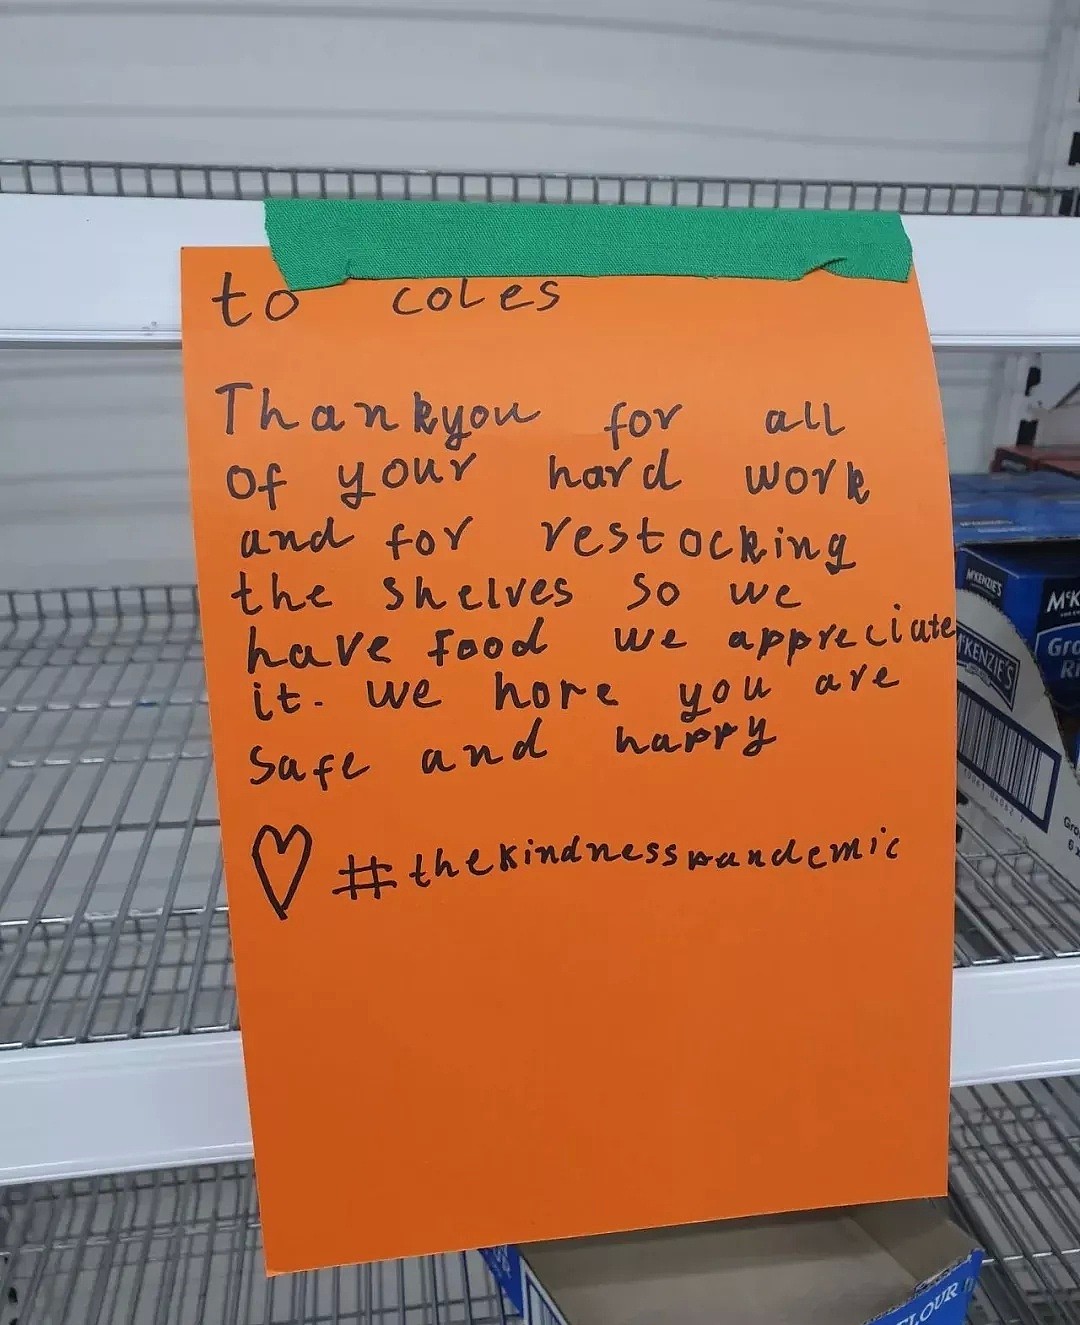 to coles
Thankyou for all
of your hard work
and for restocking
the shelves so we
have food we appreciate
it. we hope you are
safe and happy
#thekindnesspandemic
McKENZIE'S
McKENZIE'S
FLOUR